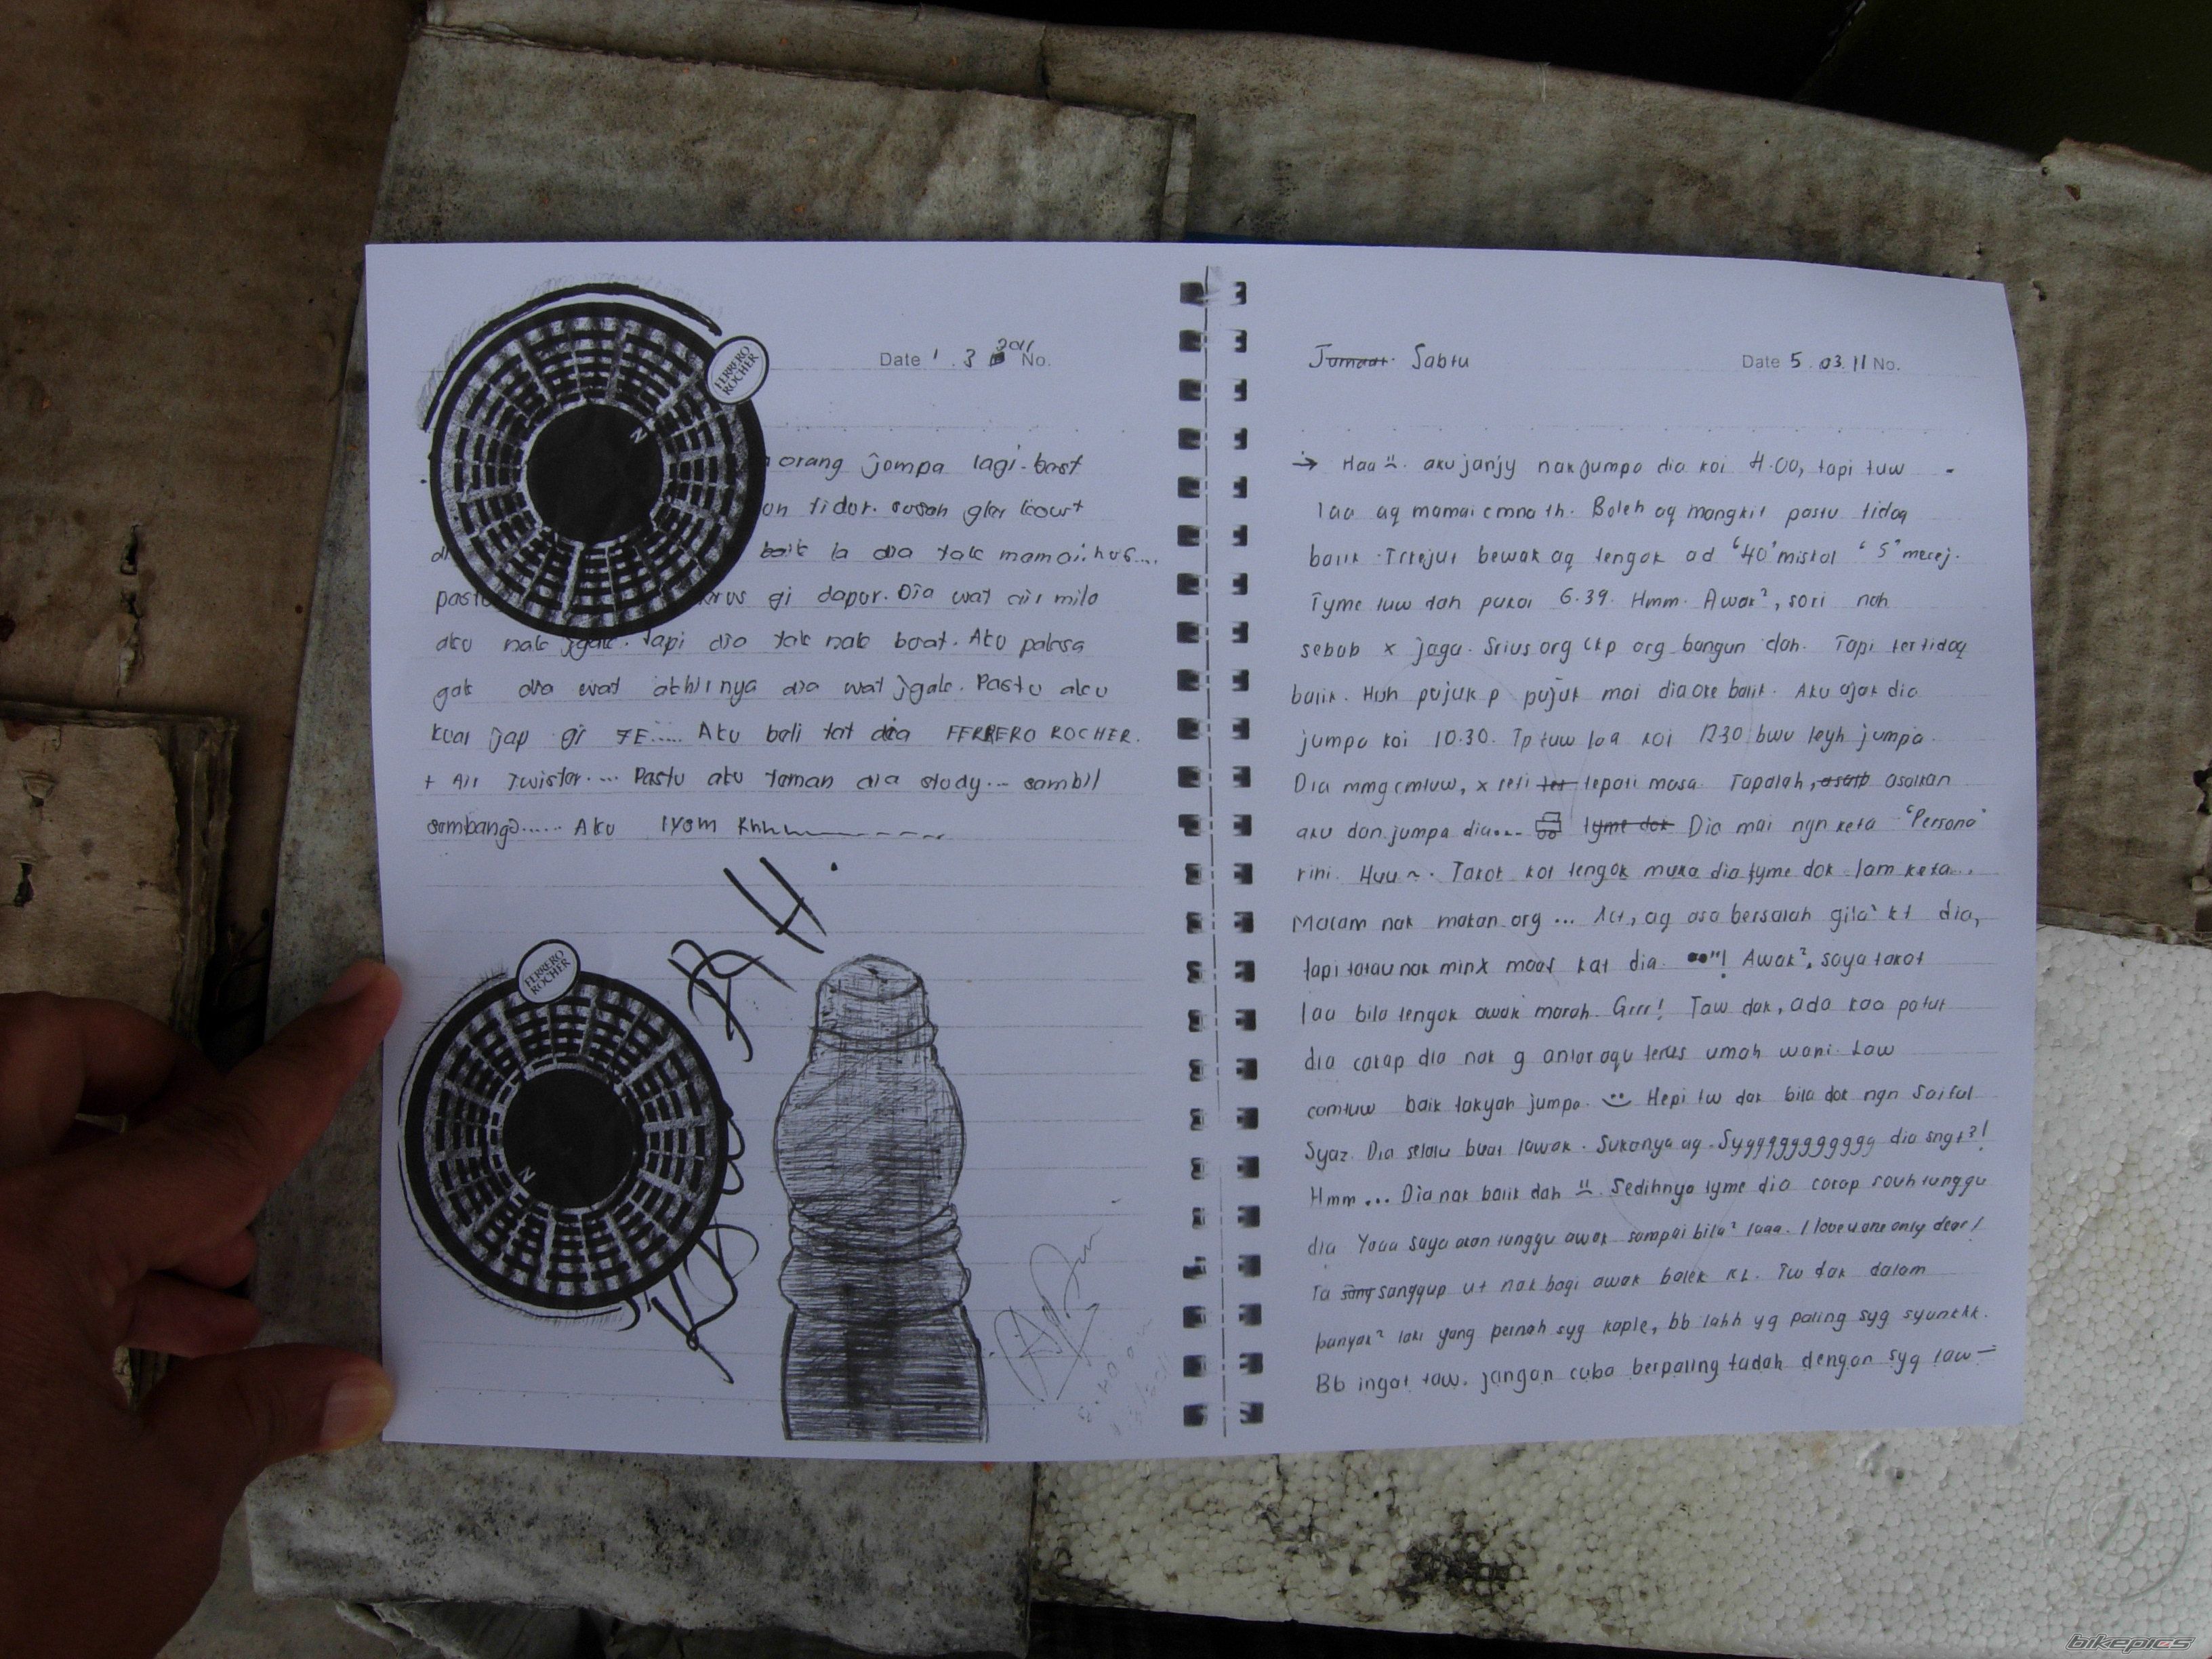 Date 1 . 3 2011 No.
FERRERO ROCHER
orang jompa lagi. bost
tidor. susah gler
baik la dia tak mamai. hus....
gi dapor. Dia wat air milo
aku nak jgak. tapi dia tak nak boat. Aku paksa
gak dia wat akhirnya dia wat jgak. Pastu aku
kuar jap gi 7E..... Aku beli kat dia FERRERO ROCHER.
+ Air Twister.... Pastu aku teman dia study... sambil
sembang2...... Aku
FERRERO ROCHER
Jumaat. Sabtu
Date 5 . 03 . 11 No.
→ Haa. aku janjy nak jumpa dia koi 4.00, tapi tuw
laa aq mamai cmna th. Boleh aq mangkit pastu tidoq
balik. Trtejut bewak aq tengok ad '40' miskol '5' mecej.
Tyme tuw dah pukoi 6.39. Hmm. Awak², sori nah
sebab x jaga. Srius org ckp org bangun dah. Tapi tertidoq
balik. Huh pujuk p pujuk mai dia oke balik. Aku ajak dia
jumpa koi 10.30. Tp tuw laa koi 12.30 bwu leyh jumpa.
Dia mmg cmtuw, x reti tepati masa. Tapalah, asalkan
aku dan jumpa dia.... tyme dok Dia mai ngn keta "Persona"
rini. Huu~. Takot kot tengok muka dia tyme dok lam keta...
Macam nak makan org ... Act, aq asa bersalah gila² kt dia,
tapi tatau nak mintx maaf kat dia. ! Awak², saya takot
laa bila tengok awak marah. Grrr! Taw dak, ada kaa patut
dia cakap dia nak g antar aqu terus umah wani. Law
camtuw baik takyah jumpa. Hepi tw dak bila dok ngn Saiful
Syaz. Dia selalu buat lawak. Sukanya aq. Sygggggggggggg dia sngt?!
Hmm ... Dia nak balik dah. Sedihnya tyme dia cakap souh tunggu
dia Yaaa saya akan tunggu awak sampai bila² laaa. I love u one only dear!
Ta sang sanggup ut nak bagi awak balek KL. Tw dak dalam
banyak² laki yang pernah syg kaple, bb lahh yg paling syg syunekk.
Bb ingat taw. jangan cuba berpaling tadah dengan syg taw
bikepics